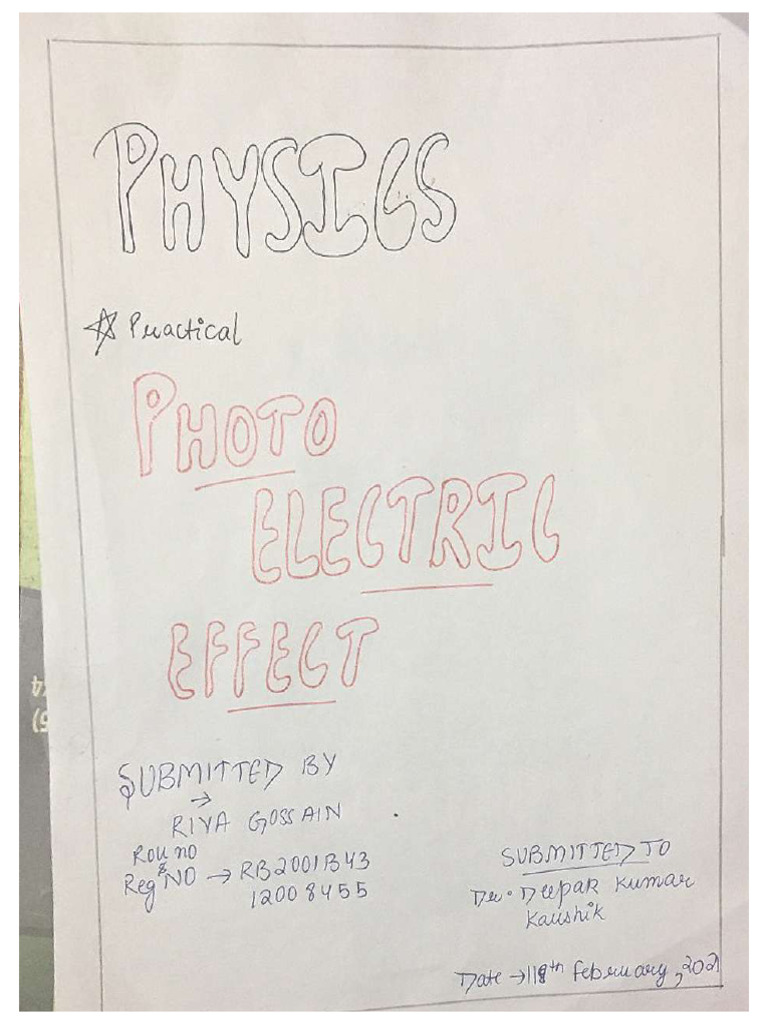 PHYSICS
☆ Practical
PHOTO
ELECTRIC
EFFECT
SUBMITTED BY
→
RIYA GOSSAIN
Roll no
&
Reg NO → RB2001B43
12008455
SUBMITTED TO
Dr. Deepak Kumar
Kaushik
Date → 18th February, 2021